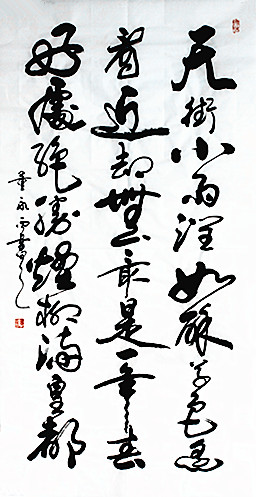 天街小雨潤如酥草色遥
看近却無最是一年春
好處絕勝煙柳滿皇都